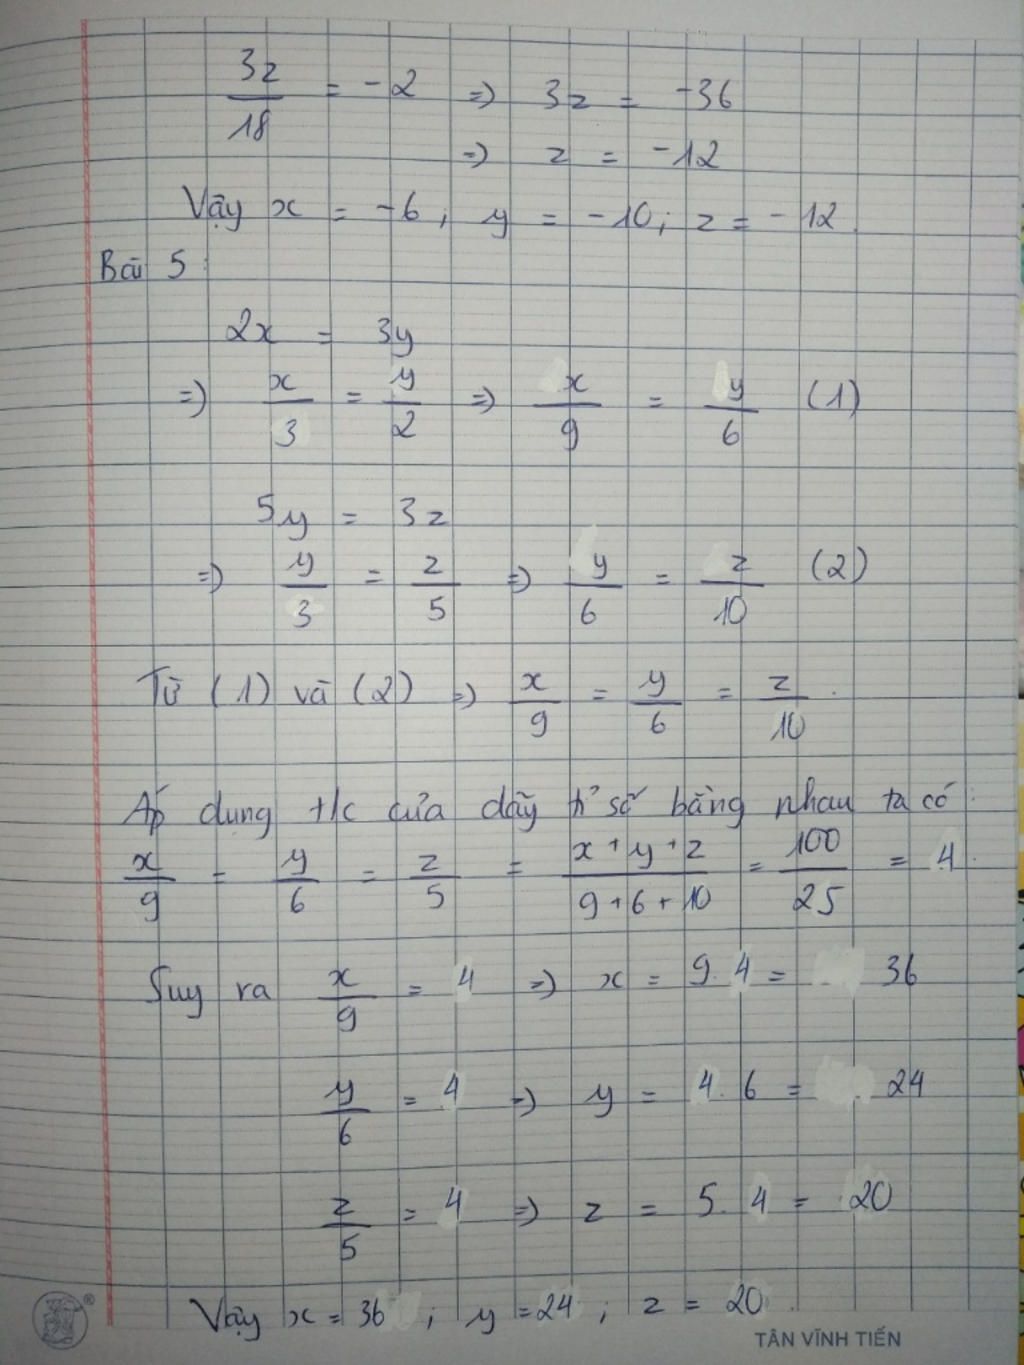 3z/18 = -2 => 3z = -36
=> z = -12
Vậy x = -6; y = -10; z = -12.
Bài 5:
2x = 3y
=> x/3 = y/2 => x/9 = y/6 (1)
5y = 3z
=> y/3 = z/5 => y/6 = z/10 (2)
Từ (1) và (2) => x/9 = y/6 = z/10.
Áp dụng t/c của dãy tỉ số bằng nhau ta có:
x/9 = y/6 = z/5 = x+y+z/9+6+10 = 100/25 = 4.
Suy ra x/9 = 4 => x = 9.4 = 36
y/6 = 4 => y = 4.6 = 24
z/5 = 4 => z = 5.4 = 20
Vậy x = 36; y = 24; z = 20.
®
TÂN VĨNH TIẾN